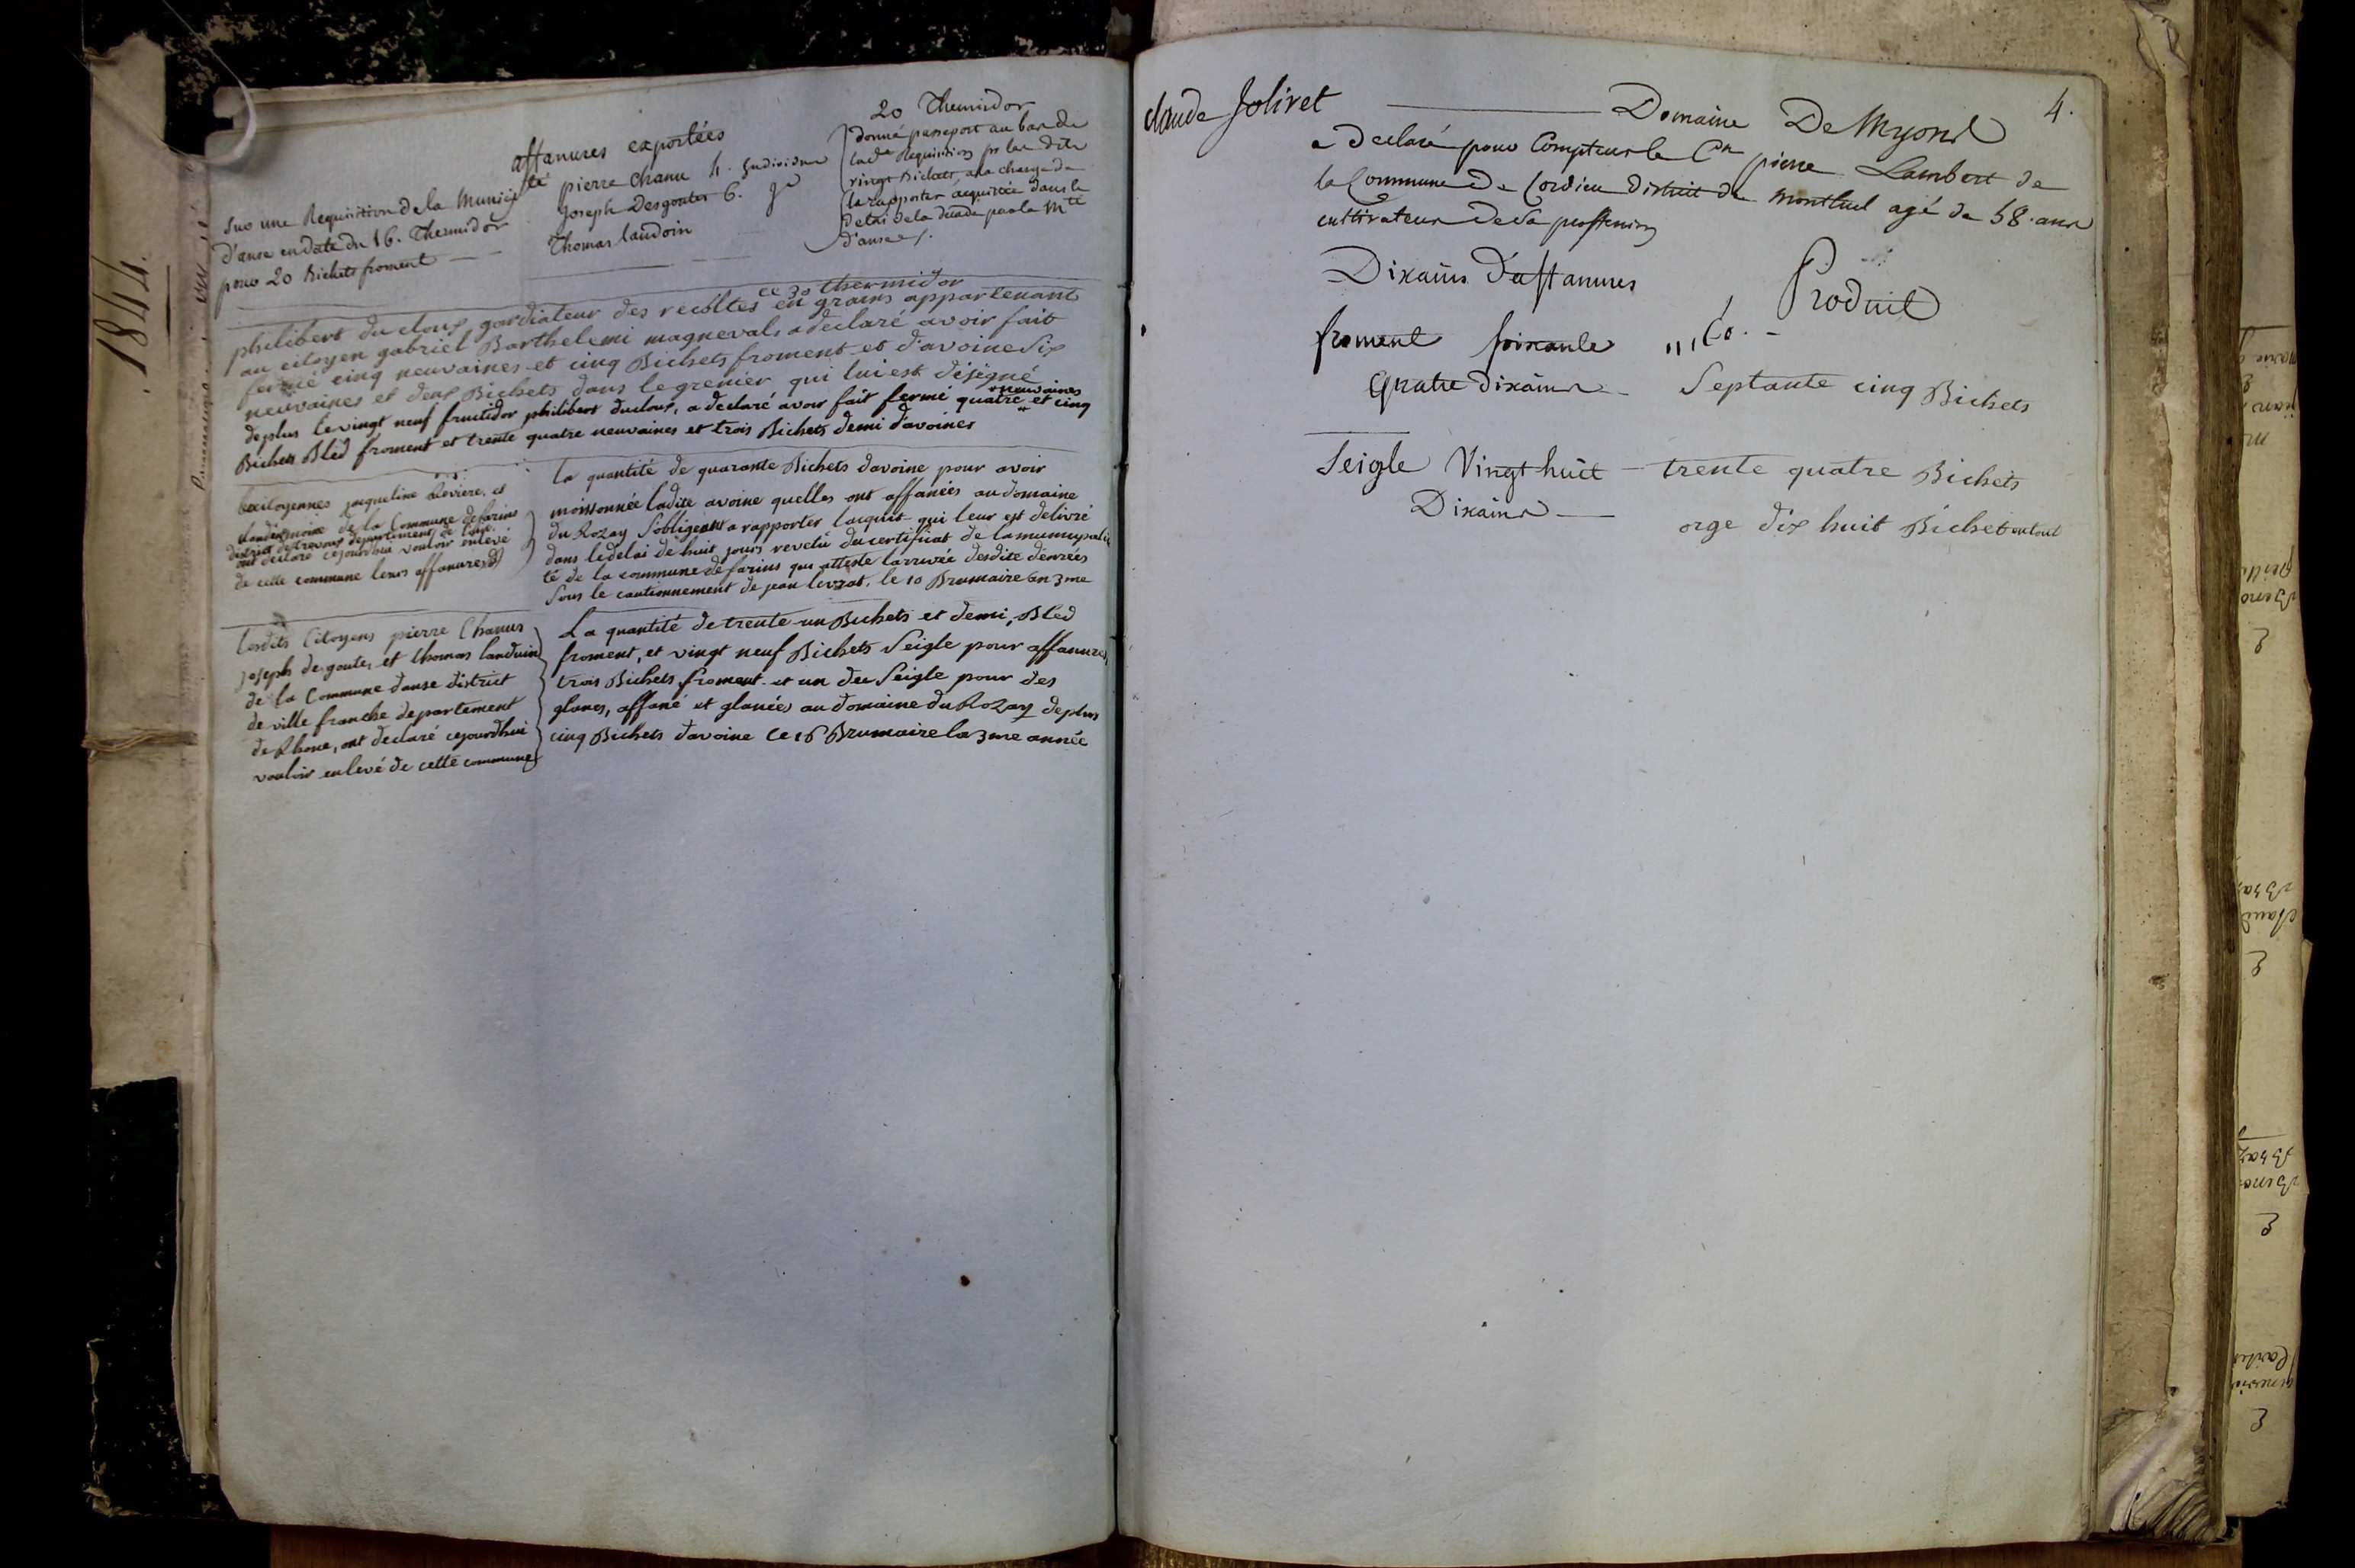 1844.
affanures exportées
Sur une Requisition de la Municip^té
d'anse en date du 16. Themidor
pour 20 Bichets froment
pierre chanu 4. Indivision
Joseph Desgoutes 6. J^d
Thomas landoin
20 Themidor
donné passeport au bas de
lad^e Requisition pr les dits
vingt Bichets a la charge de
la rapporter acquittée dans le
delai de la décade par la M^té
d'anse
ce 30 thermidor
philibert du cloux gardiateur des recoltes en grains appartenant
au citoyen gabriel Barthelemi magneval, a déclaré avoir fait
fermé cinq neuvaines et cinq Bichets froment et d'avoine Six
neuvaines et deux Bichets dans le grenier qui lui est désigné
de plus le vingt neuf fructidor philibert ducloux, a declaré avoir fait fermé quatre neuvaines et cinq
Bichets Bléd froment et trente quatre neuvaines et trois Bichets demi d'avoines
les citoyennes jaqueline Reviere, et
claudine moine de la Commune de farins
district de trevoux departement de l'ain
ont déclaré cejourdhui vouloir enlevé
de cette commune leurs affanures
la quantité de quarante Bichets davoine pour avoir
moissonnée ladite avoine quelles ont affanées au domaine
du Rozay s'obligeant a rapporter lacquit qui leur est delivré
dans le delai de huit jours revetu du certificat de la municipali
té de la commune de farins qui atteste larrivée desdite denrées
Sous le cautionnement de jean levrat. le 10 Brumaire an 3me
Lesdits Citoyens pierre Chanus
joseph degoutes et thomas landuin
de la Commune danse district
de ville franche departement
de Rhone, ont declaré cejourdhui
vouloir enlevé de cette commune
La quantité de trente un Bichets et demi, Bléd
froment, et vingt neuf Bichets Seigle pour affanures,
trois Bichets froment et un de Seigle pour des
glanes, affané et glanées au domaine du Rozay de plus
cinq Bichets davoine Ce 16 Brumaire la 3me année
4.
Claude Jolivet Domaine De Myond
a declaré pour Compteur le C^en pierre Lambert de
la Commune de Cordieu district de montluel agé de 58. ans
cultivateur de Sa proffession
Dixains D'affanures Produit
froment soixante
quatre dixains Septante cinq Bichets
Seigle Vingt huit trente quatre Bichets
Dixains
orge dix huit Bichets en tout